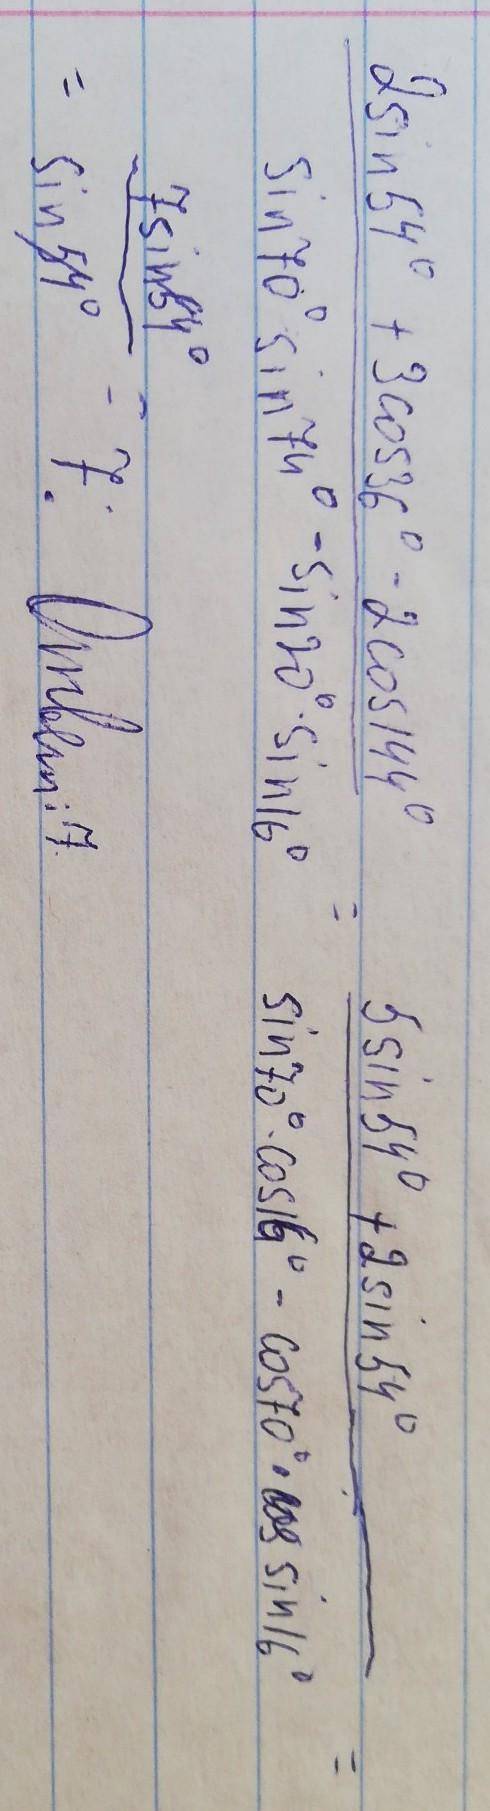 2sin54° + 3cos36° - 2cos144°
sin70° · sin74° - sin20° · sin16°
=
5sin54° + 2sin54°
sin70° · cos16° - cos70° · sin16°
=
= 7sin54°
sin54°
= 7.
Ответ: 7.